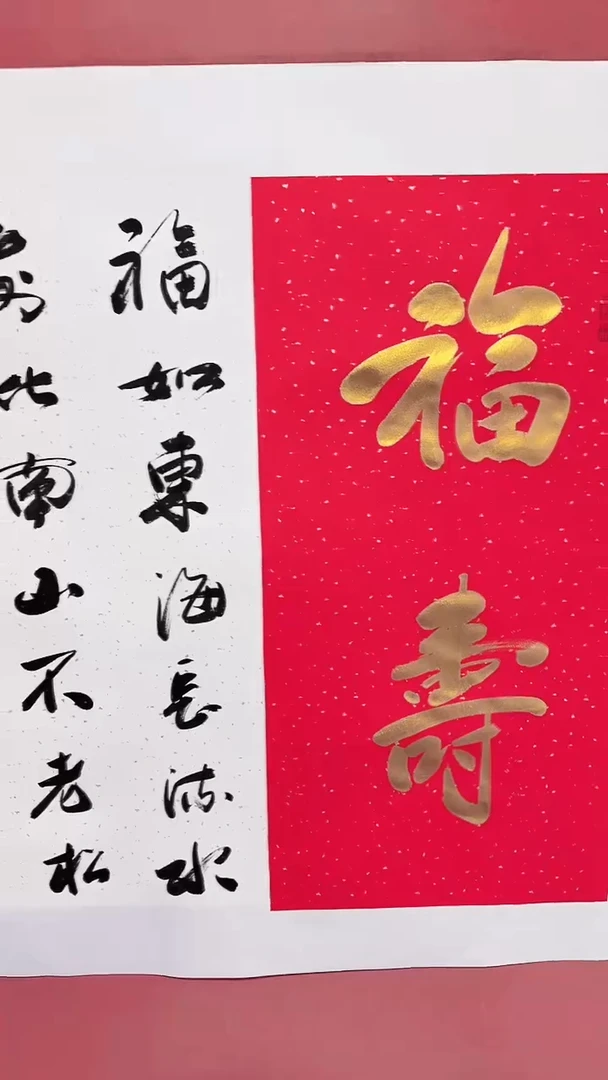 福壽
福如東海長流水
比南山不老松